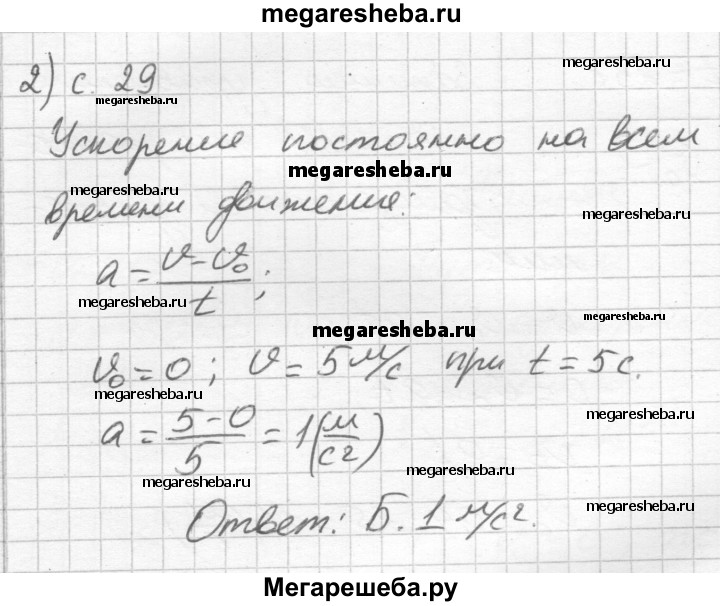 megaresheba.ru
2) с. 29
megaresheba.ru
megaresheba.ru
Ускорение постоянно на всем
megaresheba.ru
megaresheba.ru
времени движения:
megaresheba.ru
a = (v - v₀)/t ;
megaresheba.ru
megaresheba.ru
megaresheba.ru
v₀ = 0 ; v = 5 м/с при t = 5 с.
megaresheba.ru
megaresheba.ru
a = (5 - 0)/5 = 1 (м/с²)
megaresheba.ru
megaresheba.ru
Ответ: Б. 1 м/с².
megaresheba.ru
megaresheba.ru
Мегарешеба.ру